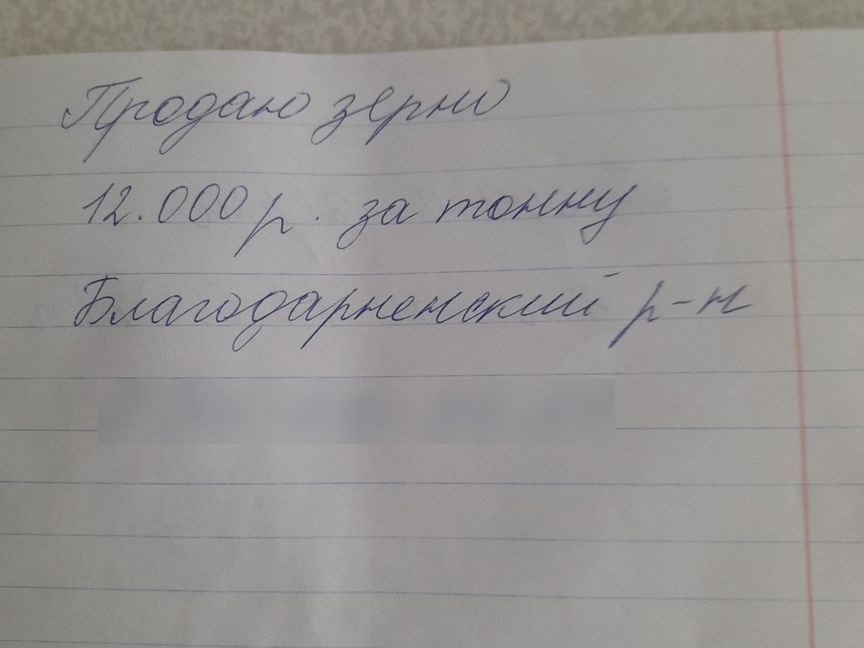 Продаю зерно
12.000 р. за тонну
Благодарненский р-н